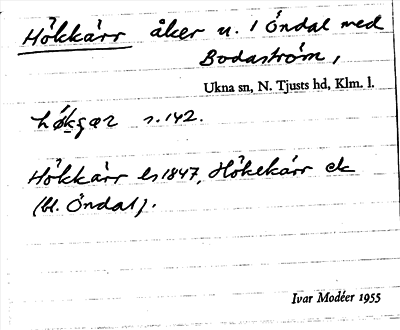 Hökkärr åker u. 1 Öndal med
Bodaström,
Ukna sn, N. Tjusts hd, Klm. l.
s. 142.
Hökkärr ls 1847, Hökekärr ek
(bl. Öndal).
Ivar Modéer 1955